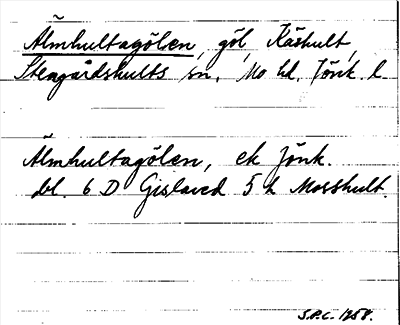 Älmhultagölen, göl, Kåshult,
Stengårdshults sn, Mo hd. Jönk. l
Älmhultagölen, ek Jönk.
bl. 6 D Gislaved 5 h Mosshult.
S.P.C. 1958.